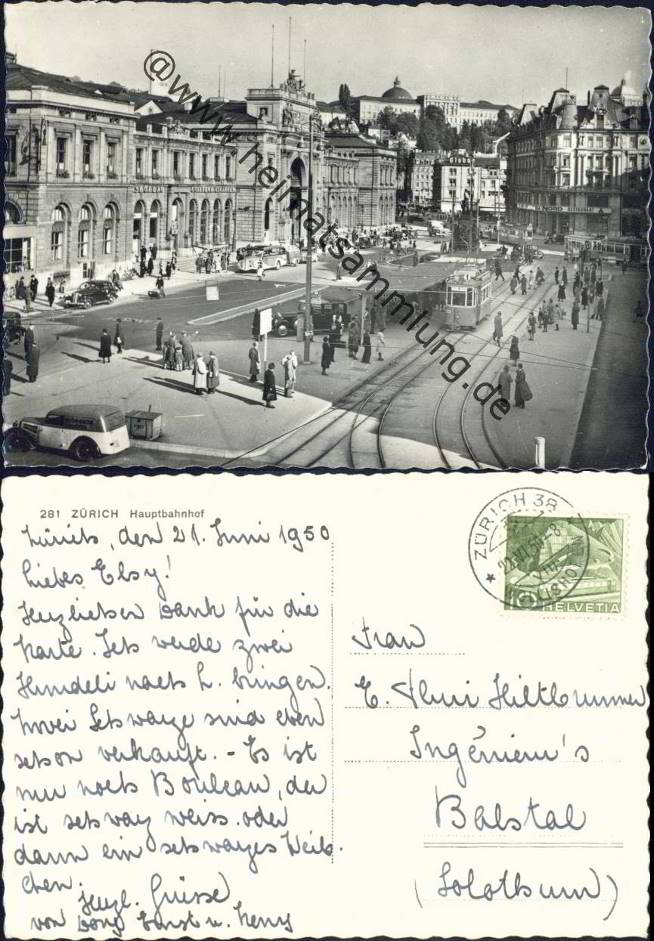 @www.heimatsammlung.de
281 ZÜRICH Hauptbahnhof
Zürich, den 21. Juni 1950
Liebes Elsy!
Herzlichen Dank für die
Karte. Ich werde zwei
Hundeli nach L. bringen.
zwei Schwarze sind eben
schon verkauft. - Es ist
nur noch Bouleau, der
ist schwarz weiss. oder
dann ein schwarzes Weib-
chen.
Herzl. Grüsse
von
Horst u.
ZÜRICH 38
HELVETIA
Frau
E. Hiltbrunner
Ingénieur's
Balstal
(Solothurn)